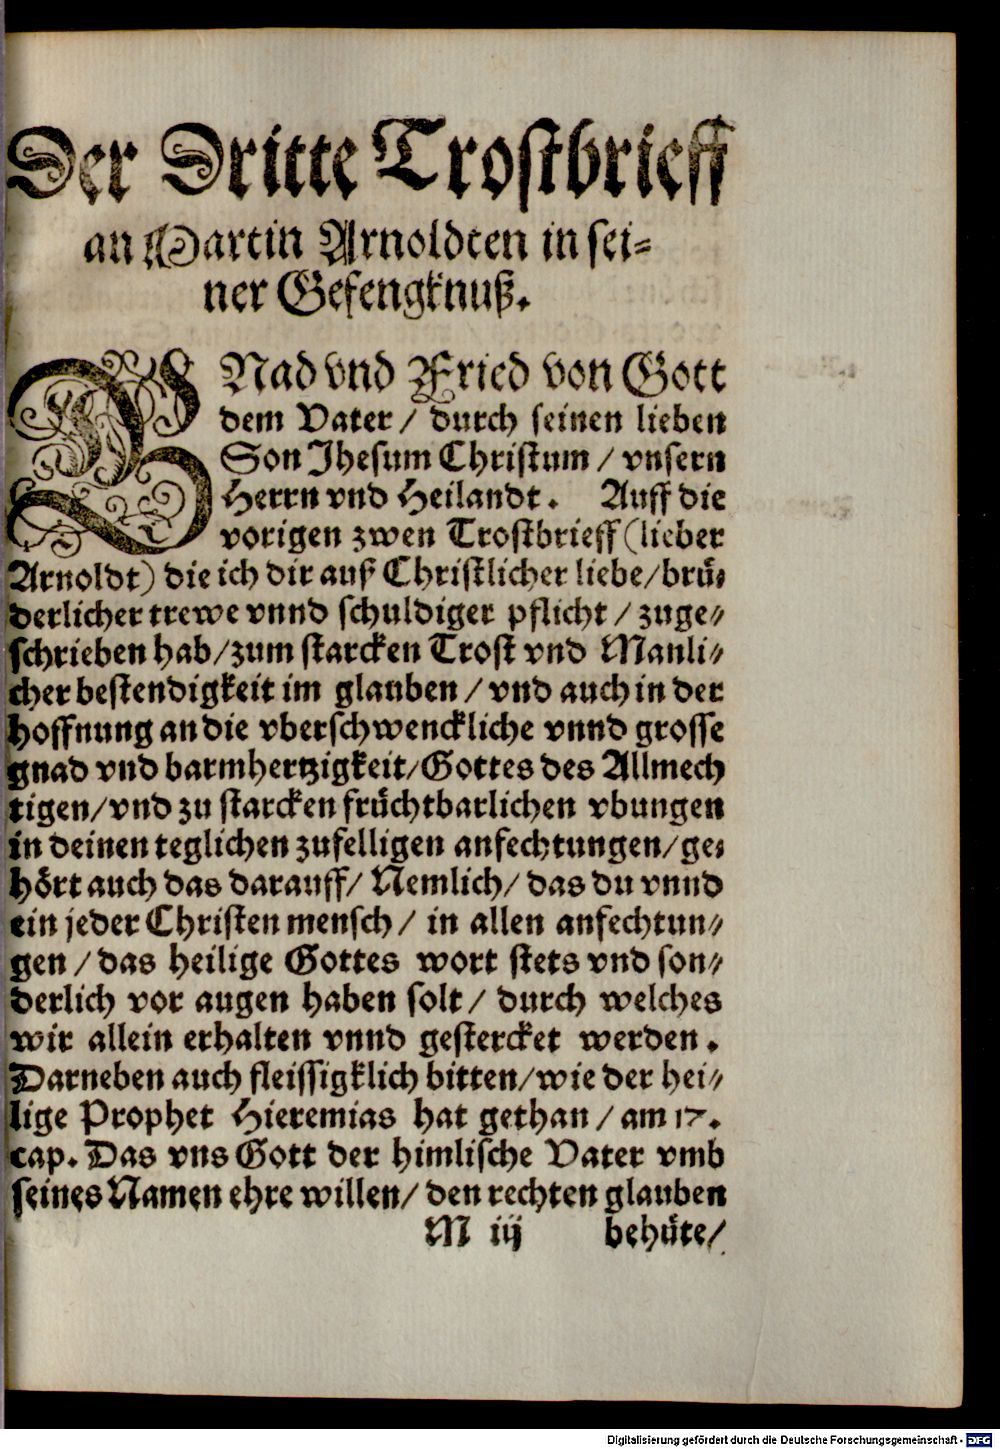 Der Dritte Trostbrieff
an Martin Arnoldten in sei⸗
ner Gefengknuß.
GNad vnd Fried von Gott
dem Vater / durch seinen lieben
Son Jhesum Christum / vnsern
Herrn vnd Heilandt. Auff die
vorigen zwen Trostbrieff (lieber
Arnoldt) die ich dir auß Christlicher liebe/brü⸗
derlicher trewe vnnd schuldiger pflicht / zuge⸗
schrieben hab/zum starcken Trost vnd Manli⸗
cher bestendigkeit im glauben / vnd auch in der
hoffnung an die vberschwenckliche vnnd grosse
gnad vnd barmhertzigkeit/Gottes des Allmech
tigen/vnd zu starcken früchtbarlichen vbungen
in deinen teglichen zufelligen anfechtungen/ge⸗
hört auch das darauff/ Nemlich/ das du vnnd
ein jeder Christen mensch / in allen anfechtun⸗
gen / das heilige Gottes wort stets vnd son⸗
derlich vor augen haben solt / durch welches
wir allein erhalten vnnd gestercket werden.
Darneben auch fleissigklich bitten/wie der hei⸗
lige Prophet Hieremias hat gethan / am 17.
cap. Das vns Gott der himlische Vater vmb
seines Namen ehre willen/ den rechten glauben
M iij behüte/
Digitalisierung gefördert durch die Deutsche Forschungsgemeinschaft - DFG